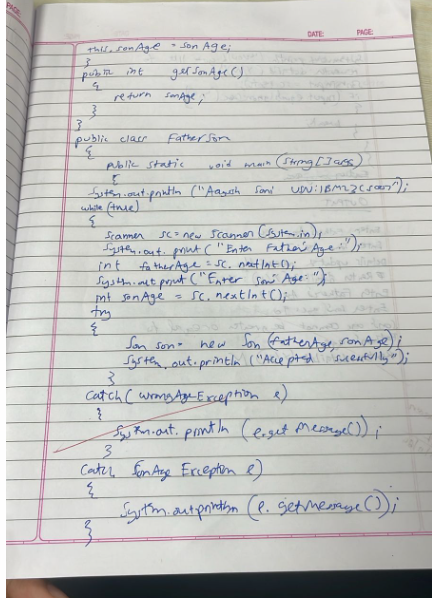 PAGE:
DATE: PAGE:
this.sonAge = sonAge;
}
public int getSonAge()
{
return sonAge;
}
}
public class FatherSon
{
public static void main (String[] args)
{
System.out.println ("Aayush Soni
while(true)
{
Scanner sc = new Scanner (System.in);
System.out.print ("Enter Father's Age:");
int fatherAge = sc.nextInt();
System.out.print ("Enter Son's Age:");
int sonAge = sc.nextInt();
try
{
Son son = new Son (fatherAge, sonAge);
System.out.println ("Accepted
}
Catch (wrongAgeException e)
{
System.out.println (e.getMessage());
}
Catch SonAge Exception e)
{
System.out.println (e.getMessage());
}
}